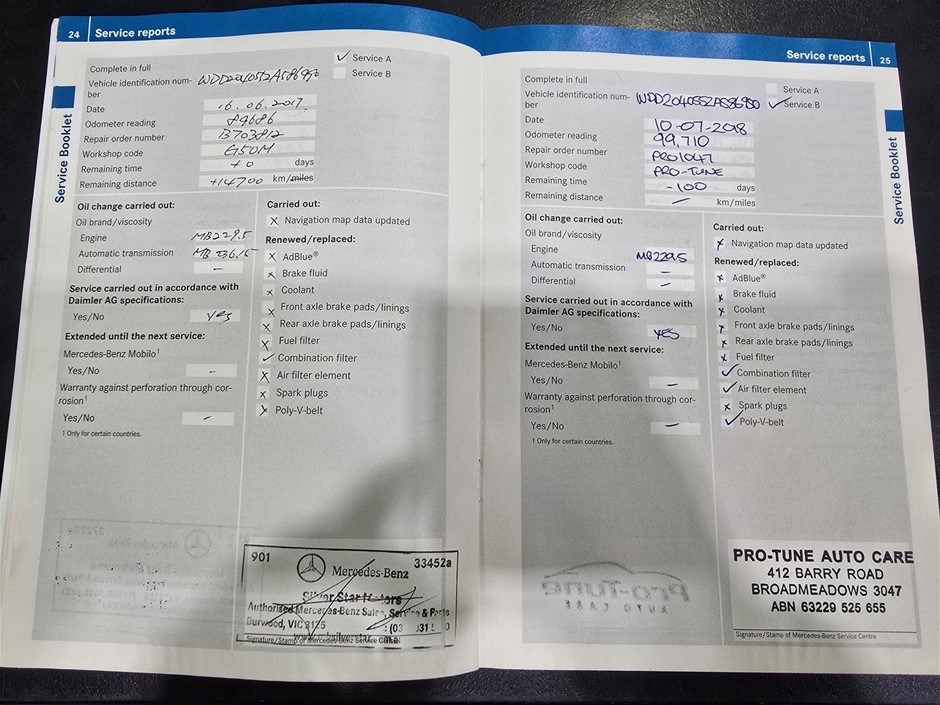 24 Service reports
Service Booklet
Complete in full
✓ Service A
Service B
Vehicle identification num-
ber
Date 16.06.2017.
Odometer reading 89686
Repair order number B703812
Workshop code G50M
Remaining time +0 days
Remaining distance +14700 km/miles
Oil change carried out:
Oil brand/viscosity
Engine MB229.5
Automatic transmission MB 236.15
Differential –
Service carried out in accordance with
Daimler AG specifications:
Yes/No Yes
Extended until the next service:
Mercedes-Benz Mobilo¹
Yes/No –
Warranty against perforation through cor-
rosion¹
Yes/No –
¹ Only for certain countries.
Carried out:
x Navigation map data updated
Renewed/replaced:
x AdBlue®
x Brake fluid
x Coolant
x Front axle brake pads/linings
x Rear axle brake pads/linings
x Fuel filter
✓ Combination filter
x Air filter element
x Spark plugs
x Poly-V-belt
901 Mercedes-Benz 33452a
Silver Star Motors
Authorised Mercedes-Benz Sales, Service & Parts
Burwood, VIC 3125
Signature/Stamp of Mercedes-Benz Service Centre
Service reports 25
Service Booklet
Complete in full
Service A
✓ Service B
Vehicle identification num-
ber WDD2040552A586980
Date 10-07-2018
Odometer reading 99,710
Repair order number PRO1047
Workshop code PRO-TUNE
Remaining time -100 days
Remaining distance – km/miles
Oil change carried out:
Oil brand/viscosity
Engine MB229.5
Automatic transmission –
Differential –
Service carried out in accordance with
Daimler AG specifications:
Yes/No YES
Extended until the next service:
Mercedes-Benz Mobilo¹
Yes/No –
Warranty against perforation through cor-
rosion¹
Yes/No –
¹ Only for certain countries.
Carried out:
x Navigation map data updated
Renewed/replaced:
x AdBlue®
x Brake fluid
x Coolant
x Front axle brake pads/linings
x Rear axle brake pads/linings
x Fuel filter
✓ Combination filter
✓ Air filter element
x Spark plugs
✓ Poly-V-belt
Pro-Tune
AUTO CARE
PRO-TUNE AUTO CARE
412 BARRY ROAD
BROADMEADOWS 3047
ABN 63229 525 655
Signature/Stamp of Mercedes-Benz Service Centre